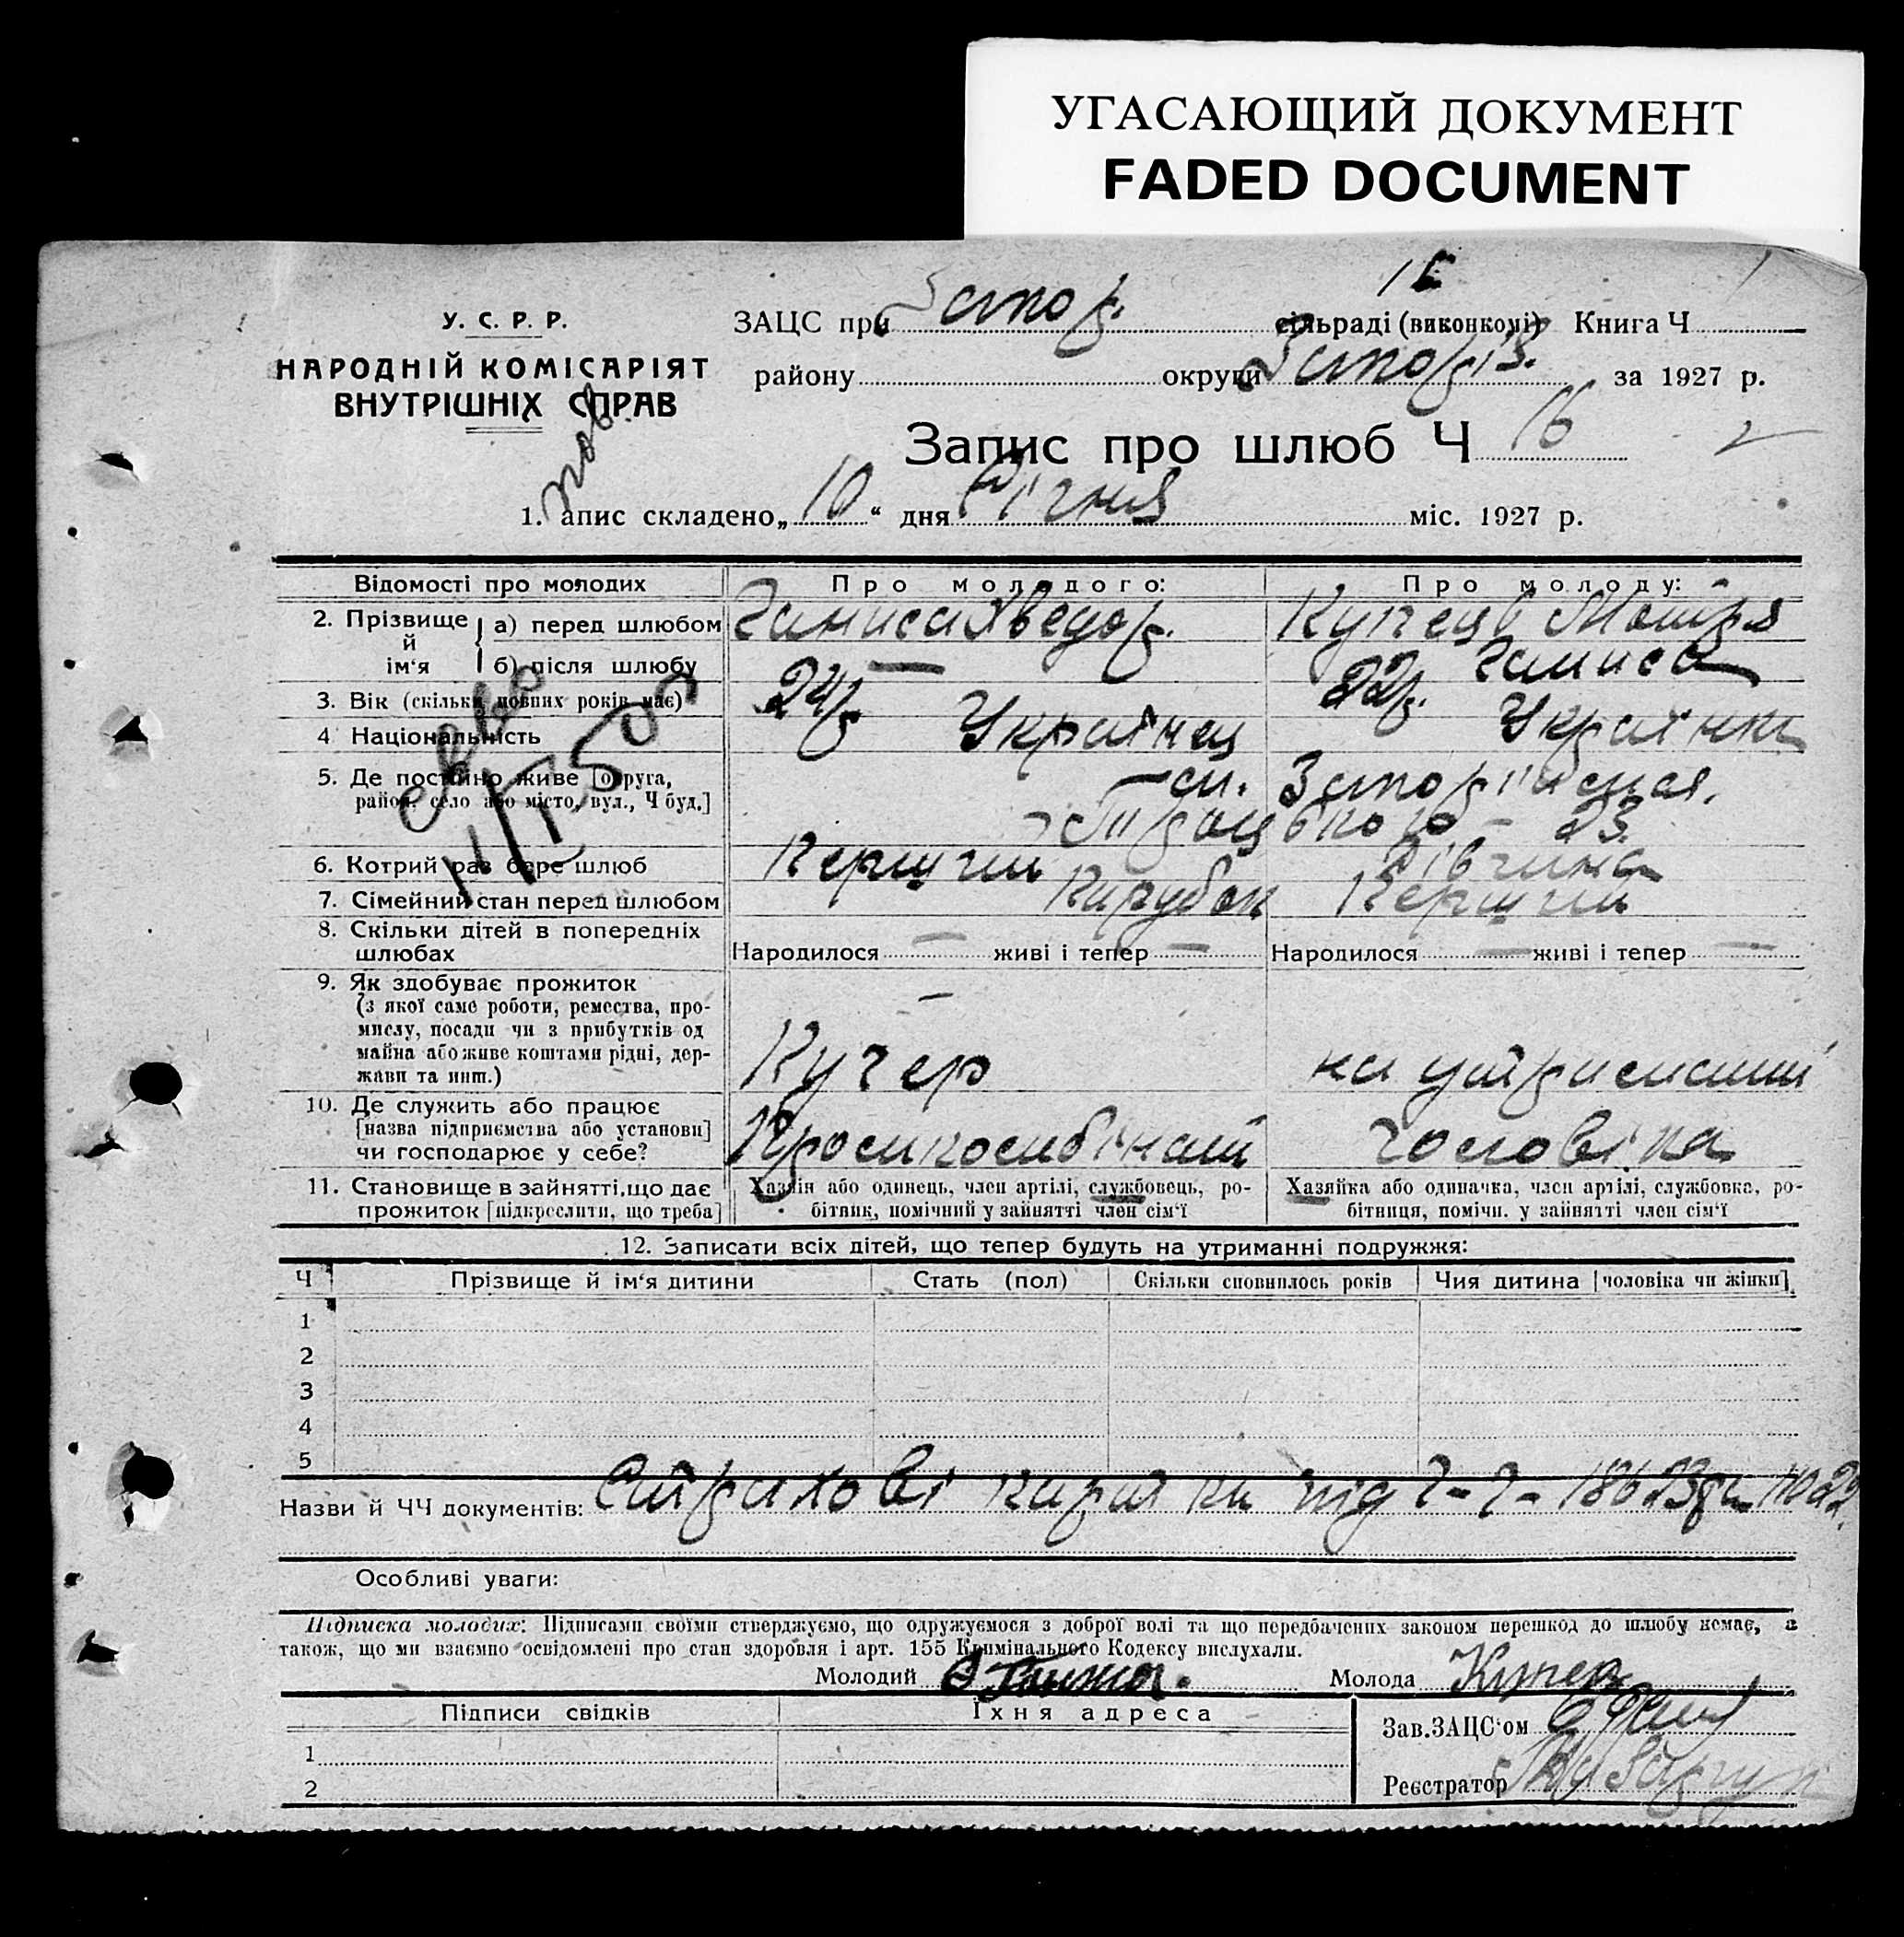 УГАСАЮЩИЙ ДОКУМЕНТ
FADED DOCUMENT
У. С. Р. Р.
НАРОДНІЙ КОМІСАРІЯТ
ВНУТРІШНІХ СПРАВ
ЗАЦС при Запор. сільраді (виконкомі) Книга Ч
району округи Запоріз. за 1927 р.
Запис про шлюб Ч 16
1. апис складено „10“ дня Січня міс. 1927 р.
Відомості про молодих Про молодого: Про молоду:
2. Прізвище й ім‘я а) перед шлюбом Хведор Купець Мотря
б) після шлюбу —
3. Вік (скільки повних років має) 24 р 22 р.
4 Національність Українец Українка
5. Де постійно живе [округа, район, село або місто, вул., Ч буд.] ст. Запоріжжя
23.
6. Котрий раз бере шлюб Перший Дівчина
7. Сімейний стан перед шлюбом Парубок Перший
8. Скільки дітей в попередніх шлюбах Народилося — живі і тепер — Народилося — живі і тепер —
9. Як здобуває прожиток (з якої саме роботи, ремества, промислу, посади чи з прибутків од майна або живе коштами рідні, держави та инш.) — Кучер на утриманні
10. Де служить або працює [назва підприємства або установи] чи господарює у себе? чоловіка
11. Становище в зайнятті, що дає прожиток [підкреслити, що треба] Хазяїн або одинець, член артілі, службовець, робітник, помічний у зайнятті член сім‘ї Хазяйка або одиначка, член артілі, службовка, робітниця, помічн. у зайнятті член сім‘ї
12. Записати всіх дітей, що тепер будуть на утриманні подружжя:
Ч Прізвище й ім‘я дитини Стать (пол) Скільки сповнилось років Чия дитина [чоловіка чи жінки]
1
2
3
4
5
Назви й ЧЧ документів: Страхові картки під
Особливі уваги:
Підписка молодих: Підписами своїми стверджуємо, що одружуємося з доброї волі та що передбачених законом перешкод до шлюбу немає, а
також, що ми взаємно освідомлені про стан здоров‘я і арт. 155 Кримінального Кодексу вислухали.
Молодий Молода Купец
Підписи свідків Їхня адреса
Зав.ЗАЦС‘ом
1
Реєстратор
2